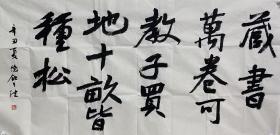 藏書
萬卷可
教子買
地十畝皆
種松
辛丑夏